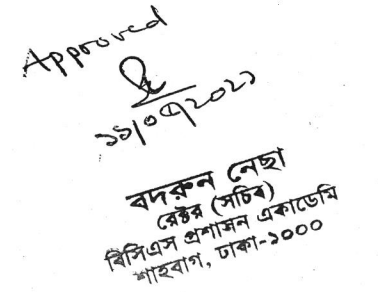 Approved
বদরুন নেছা
রেক্টর (সচিব)
বিসিএস প্রশাসন একাডেমি
শাহবাগ, ঢাকা-১০০০